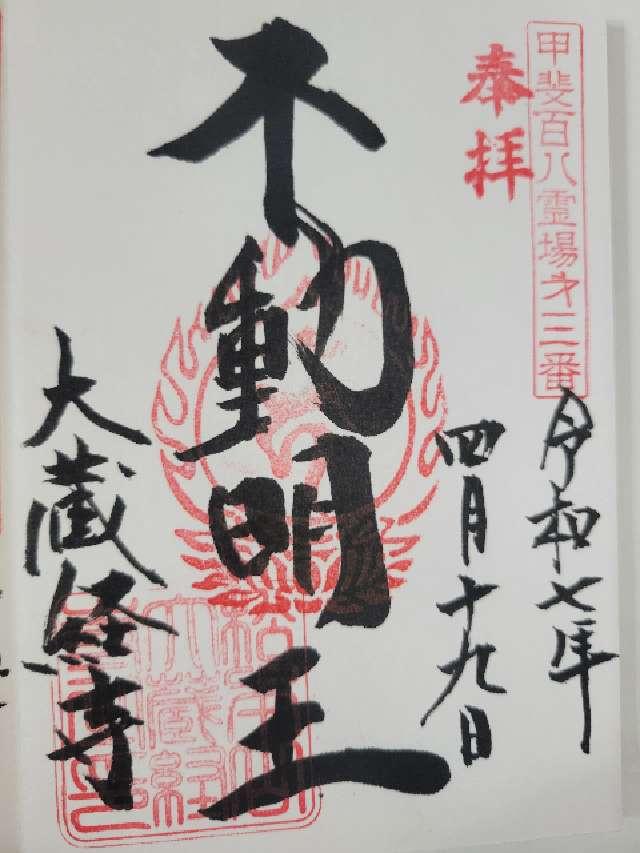 甲斐百八霊場才三番
奉拝
令和七年
四月十九日
不動明王
大蔵経寺